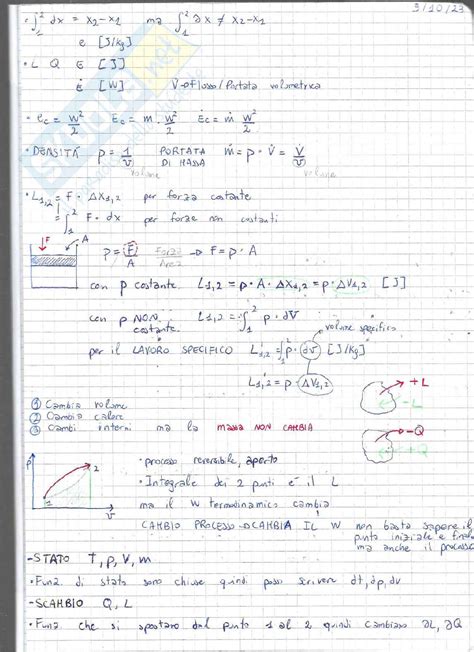 3/10/23
• ∫₁² dx = x2-x1 ma ∫₁² ∂x ≠ x2-x1
e [J/kg]
• L Q E [J]
Ė [W] V̇→flusso/Portata volumetrica
• ec = w²/2 Ec = m · w²/2 Ėc = ṁ w²/2
• DENSITÁ ρ = 1/v PORTATA DI MASSA ṁ = ρ · V̇ = V̇/v
volume volume
• L1,2 = F · ΔX1,2 per forza costante
= ∫₁² F · dx per forze non costanti
F A
p = F/A Forza/Area → F = p · A
con p costante L1,2 = p · A · ΔX1,2 = p · ΔV1,2 [J]
con p NON costante L1,2 = ∫₁² p · dV
volume specifico
per il LAVORO SPECIFICO L'1,2 = ∫₁² p · dv [J/kg]
L'1,2 = p · ΔV1,2
① Cambia volume
② Cambia calore
③ Cambi interni ma la massa NON CAMBIA
+L
-L
-Q
+Q
p 1 2 V
• processo reversibile, aperto
• Integrale dei 2 punti è il L
ma il W termodinamico cambia
CAMBIO PROCESSO→CAMBIA IL W non basta sapere il punto iniziale e finale ma anche il processo
- STATO T, p, V, m
• Funz di stato sono chiuse quindi posso scrivere dt, dp, dv
- SCAMBIO Q, L
• Funz che si spostano dal punto 1 al 2 quindi cambiano ∂L, ∂Q